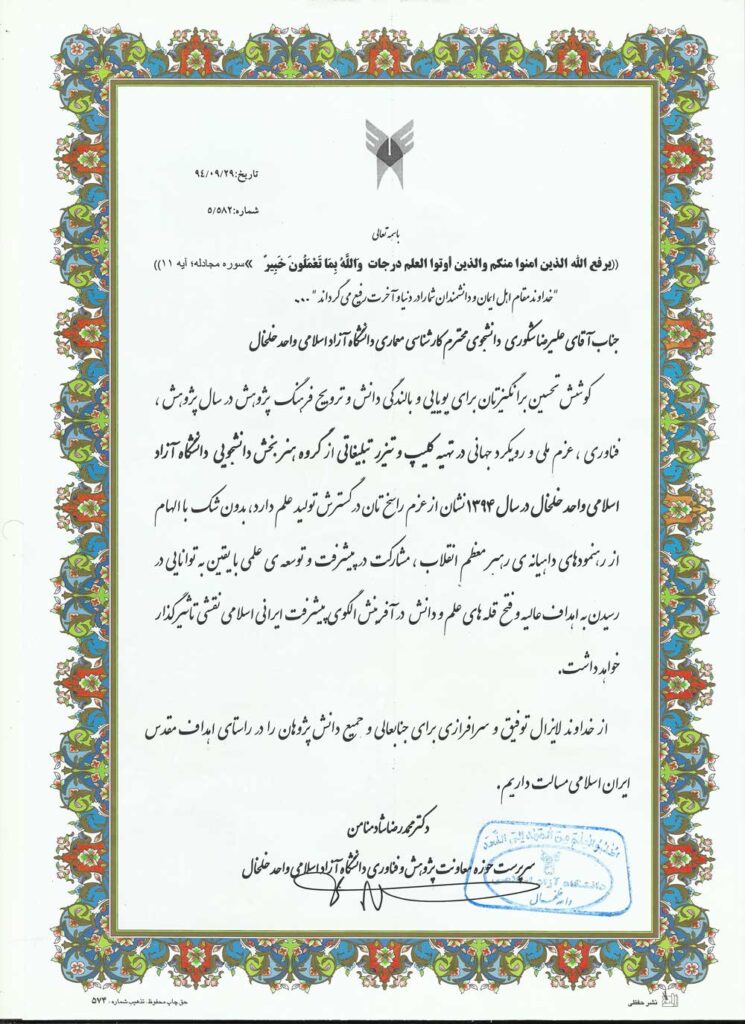 تاریخ:۹۴/۰۹/۲۹
شماره:۵/۵۸۲
باسمه تعالی
((یرفع الله الذین امنوا منکم والذین أوتوا العلم درجات وَاللَّهُ بِمَا تَعْمَلُونَ خَبِیر» سوره مجادله؛ آیه ۱۱))
"خداوند مقام اهل ایمان و دانشمندان شما را در دنیا و آخرت رفیع می گرداند" ...
جناب آقای علیرضا شکوری دانشجوی محترم کارشناسی معماری دانشگاه آزاد اسلامی واحد خلخال
کوشش تحسین برانگیزتان برای پویایی و بالندگی دانش و ترویج فرهنگ پژوهش در سال پژوهش ،
فناوری ، عزم ملی و رویکرد جهانی در تهیه کلیپ و تیزر تبلیغاتی از گروه هنر بخش دانشجویی دانشگاه آزاد
اسلامی واحد خلخال در سال ۱۳۹۴ نشان از عزم راسخ تان در گسترش تولید علم دارد، بدون شک با الهام
از رهنمودهای داهیانه ی رهبر معظم انقلاب ، مشارکت در پیشرفت و توسعه ی علمی با یقین به توانایی در
رسیدن به اهداف عالیه و فتح قله های علم و دانش در آفرینش الگوی پیشرفت ایرانی اسلامی نقشی تاثیرگذار
خواهد داشت.
از خداوند لایزال توفیق و سرافرازی برای جنابعالی و جمیع دانش پژوهان را در راستای اهداف مقدس
ایران اسلامی مسالت داریم.
دکتر محمدرضا شادمنامن
سرپرست حوزه معاونت پژوهش و فناوری دانشگاه آزاد اسلامی واحد خلخال
دانشگاه آزاد اسلامی
واحد خلخال
نشر حافظی
حق چاپ محفوظ. تذهیب شماره: ۵۷۴